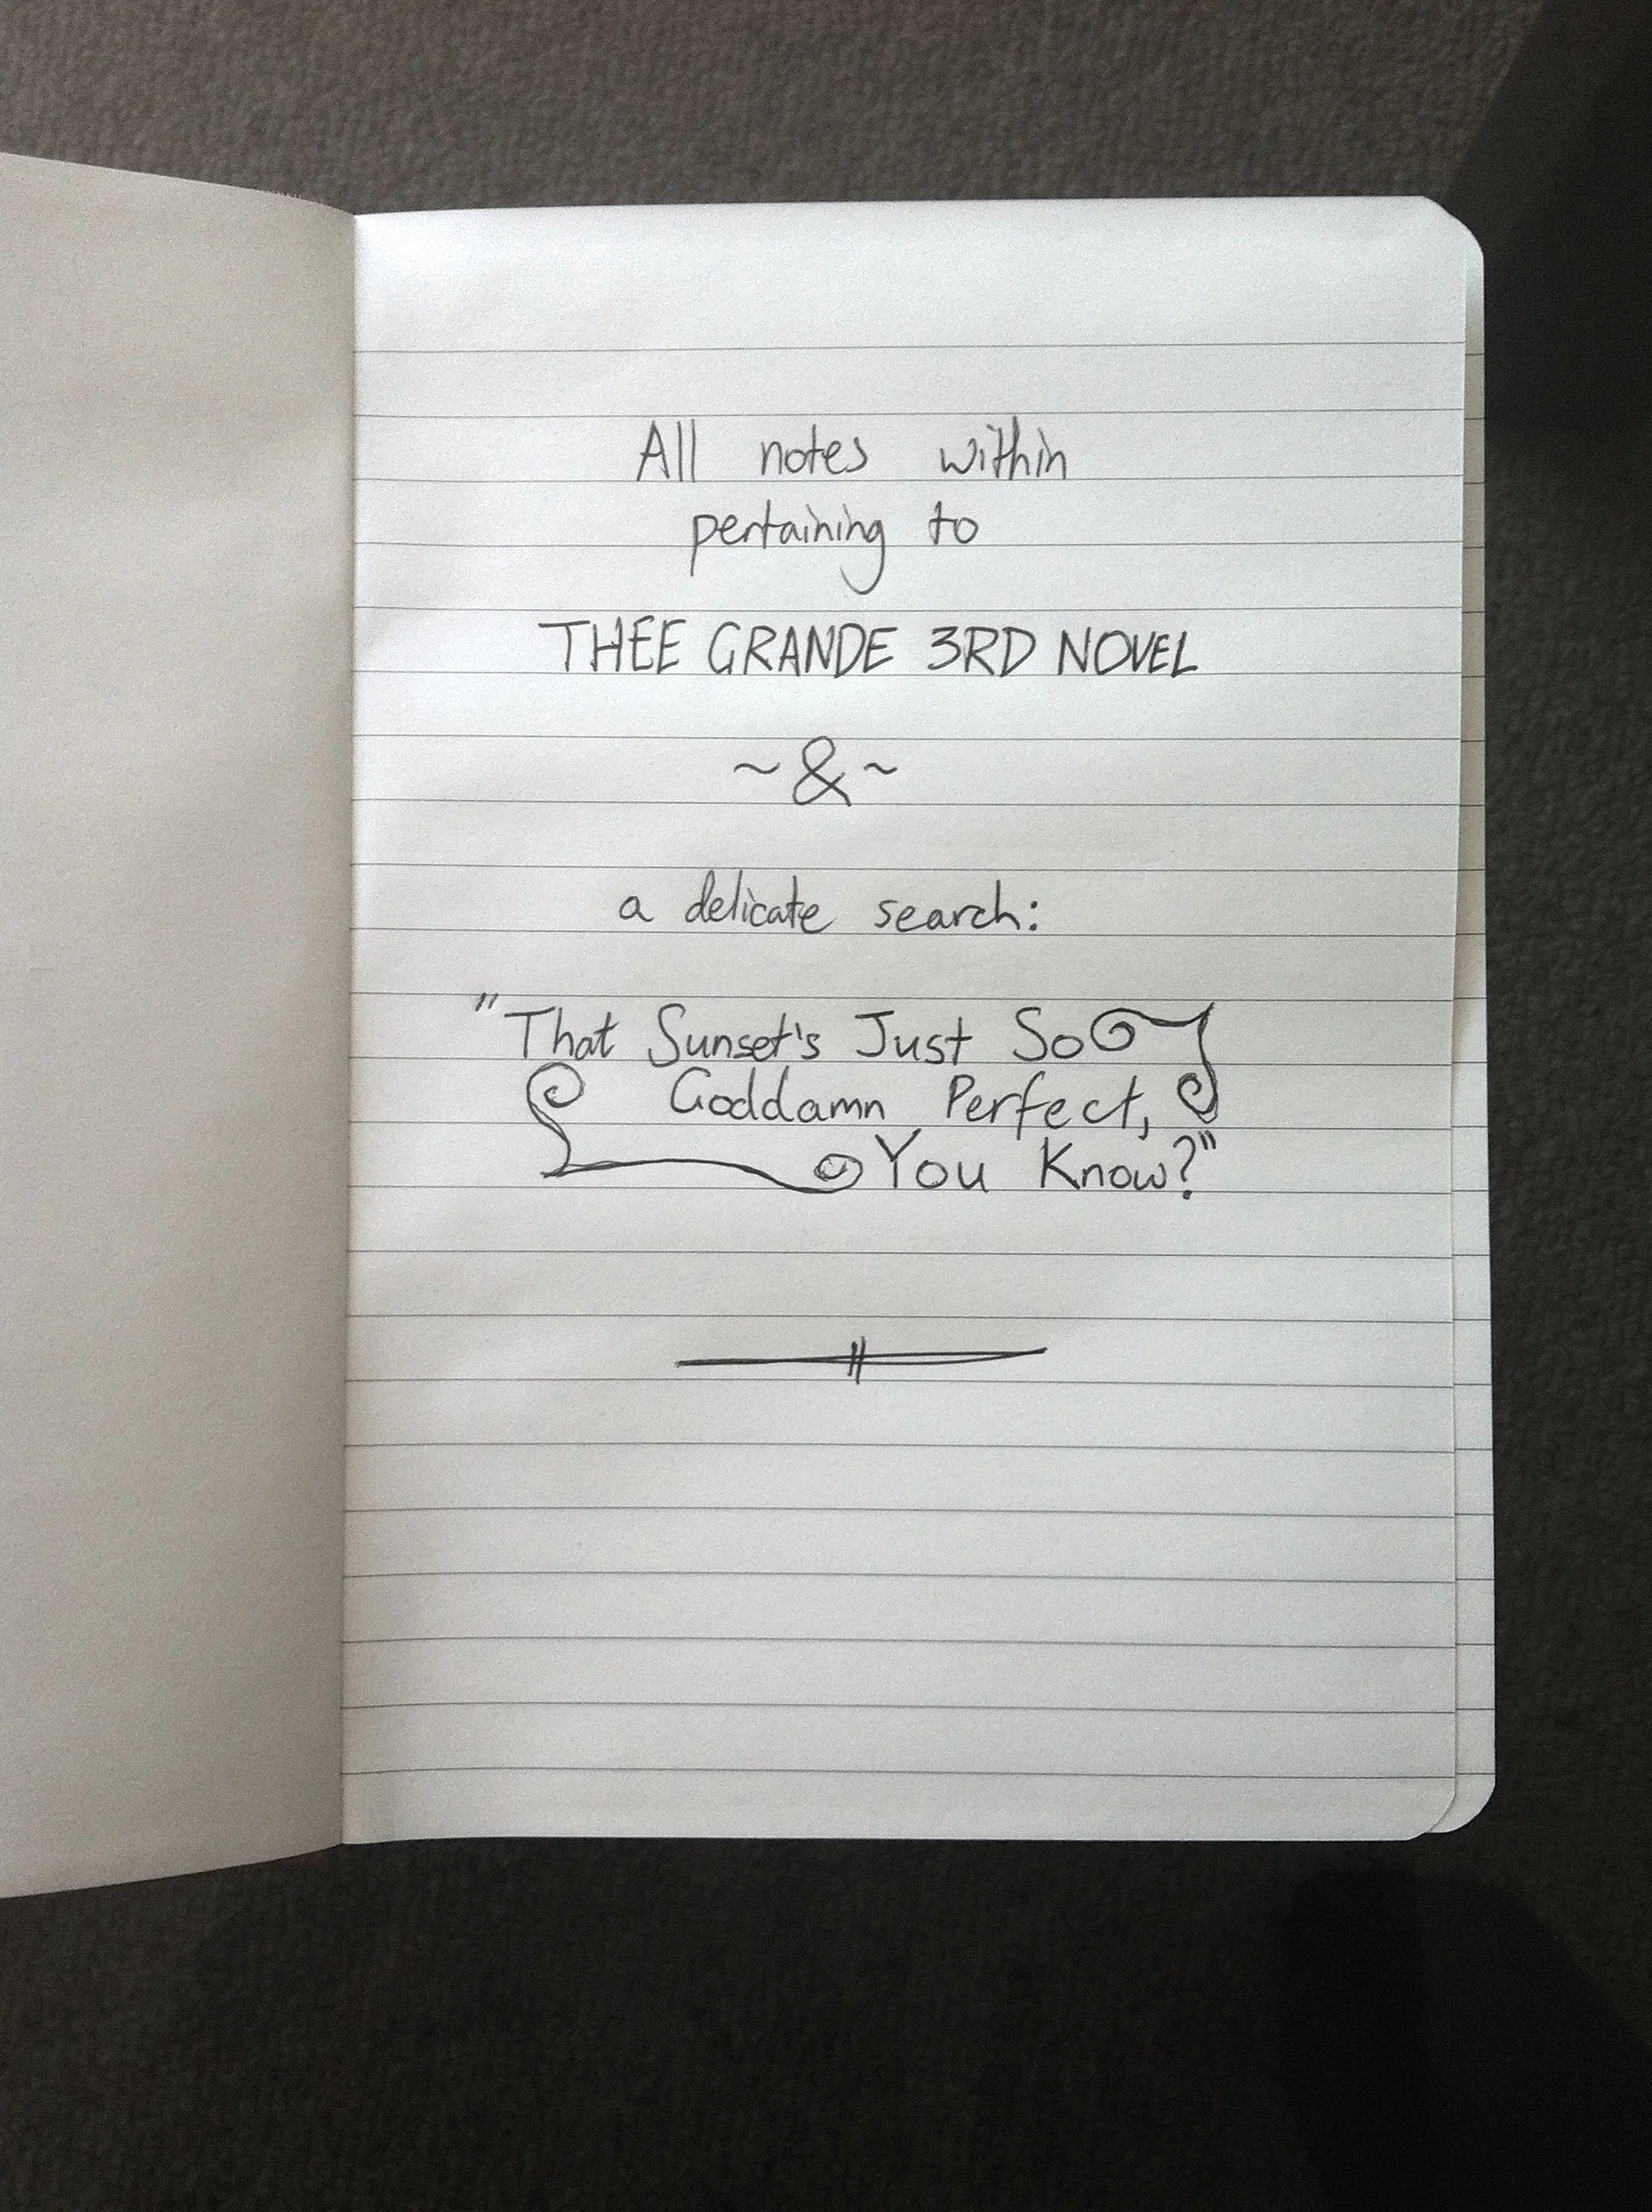 All notes within
pertaining to
THEE GRANDE 3RD NOVEL
~&~
a delicate search:
"That Sunset's Just So
Goddamn Perfect,
You Know?"